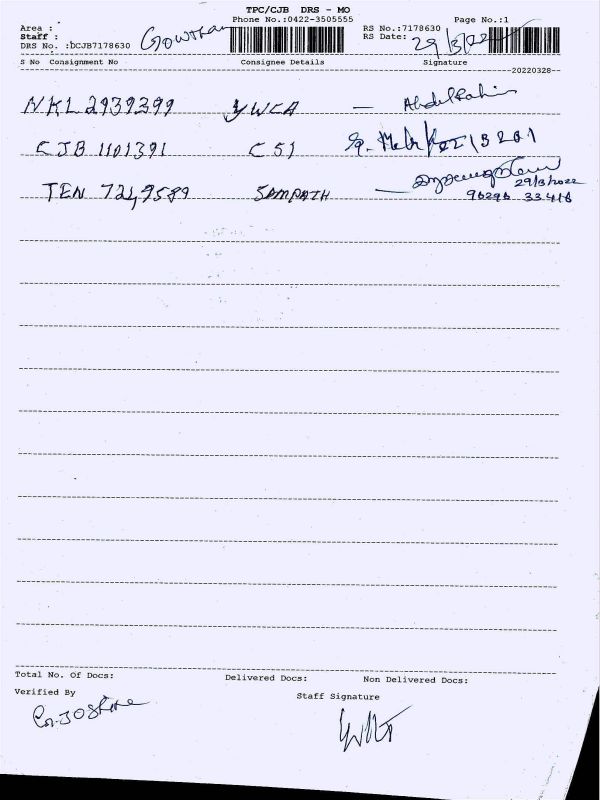 TPC/CJB DRS - MO
Phone No.:0422-3505555
Page No.:1
Area :
Staff : Gowtham
DRS No. :bCJB7178630
RS No.:7178630
RS Date: 29/3/22
S No Consignment No Consignee Details Signature
20220328
NKL 2939399 YWCA — Abdul Rahim
CJB 1101391 CSI
TEN 7249589 SAMPATH —
29/3/2022
96296 33416
Total No. Of Docs: Delivered Docs: Non Delivered Docs:
Verified By Staff Signature